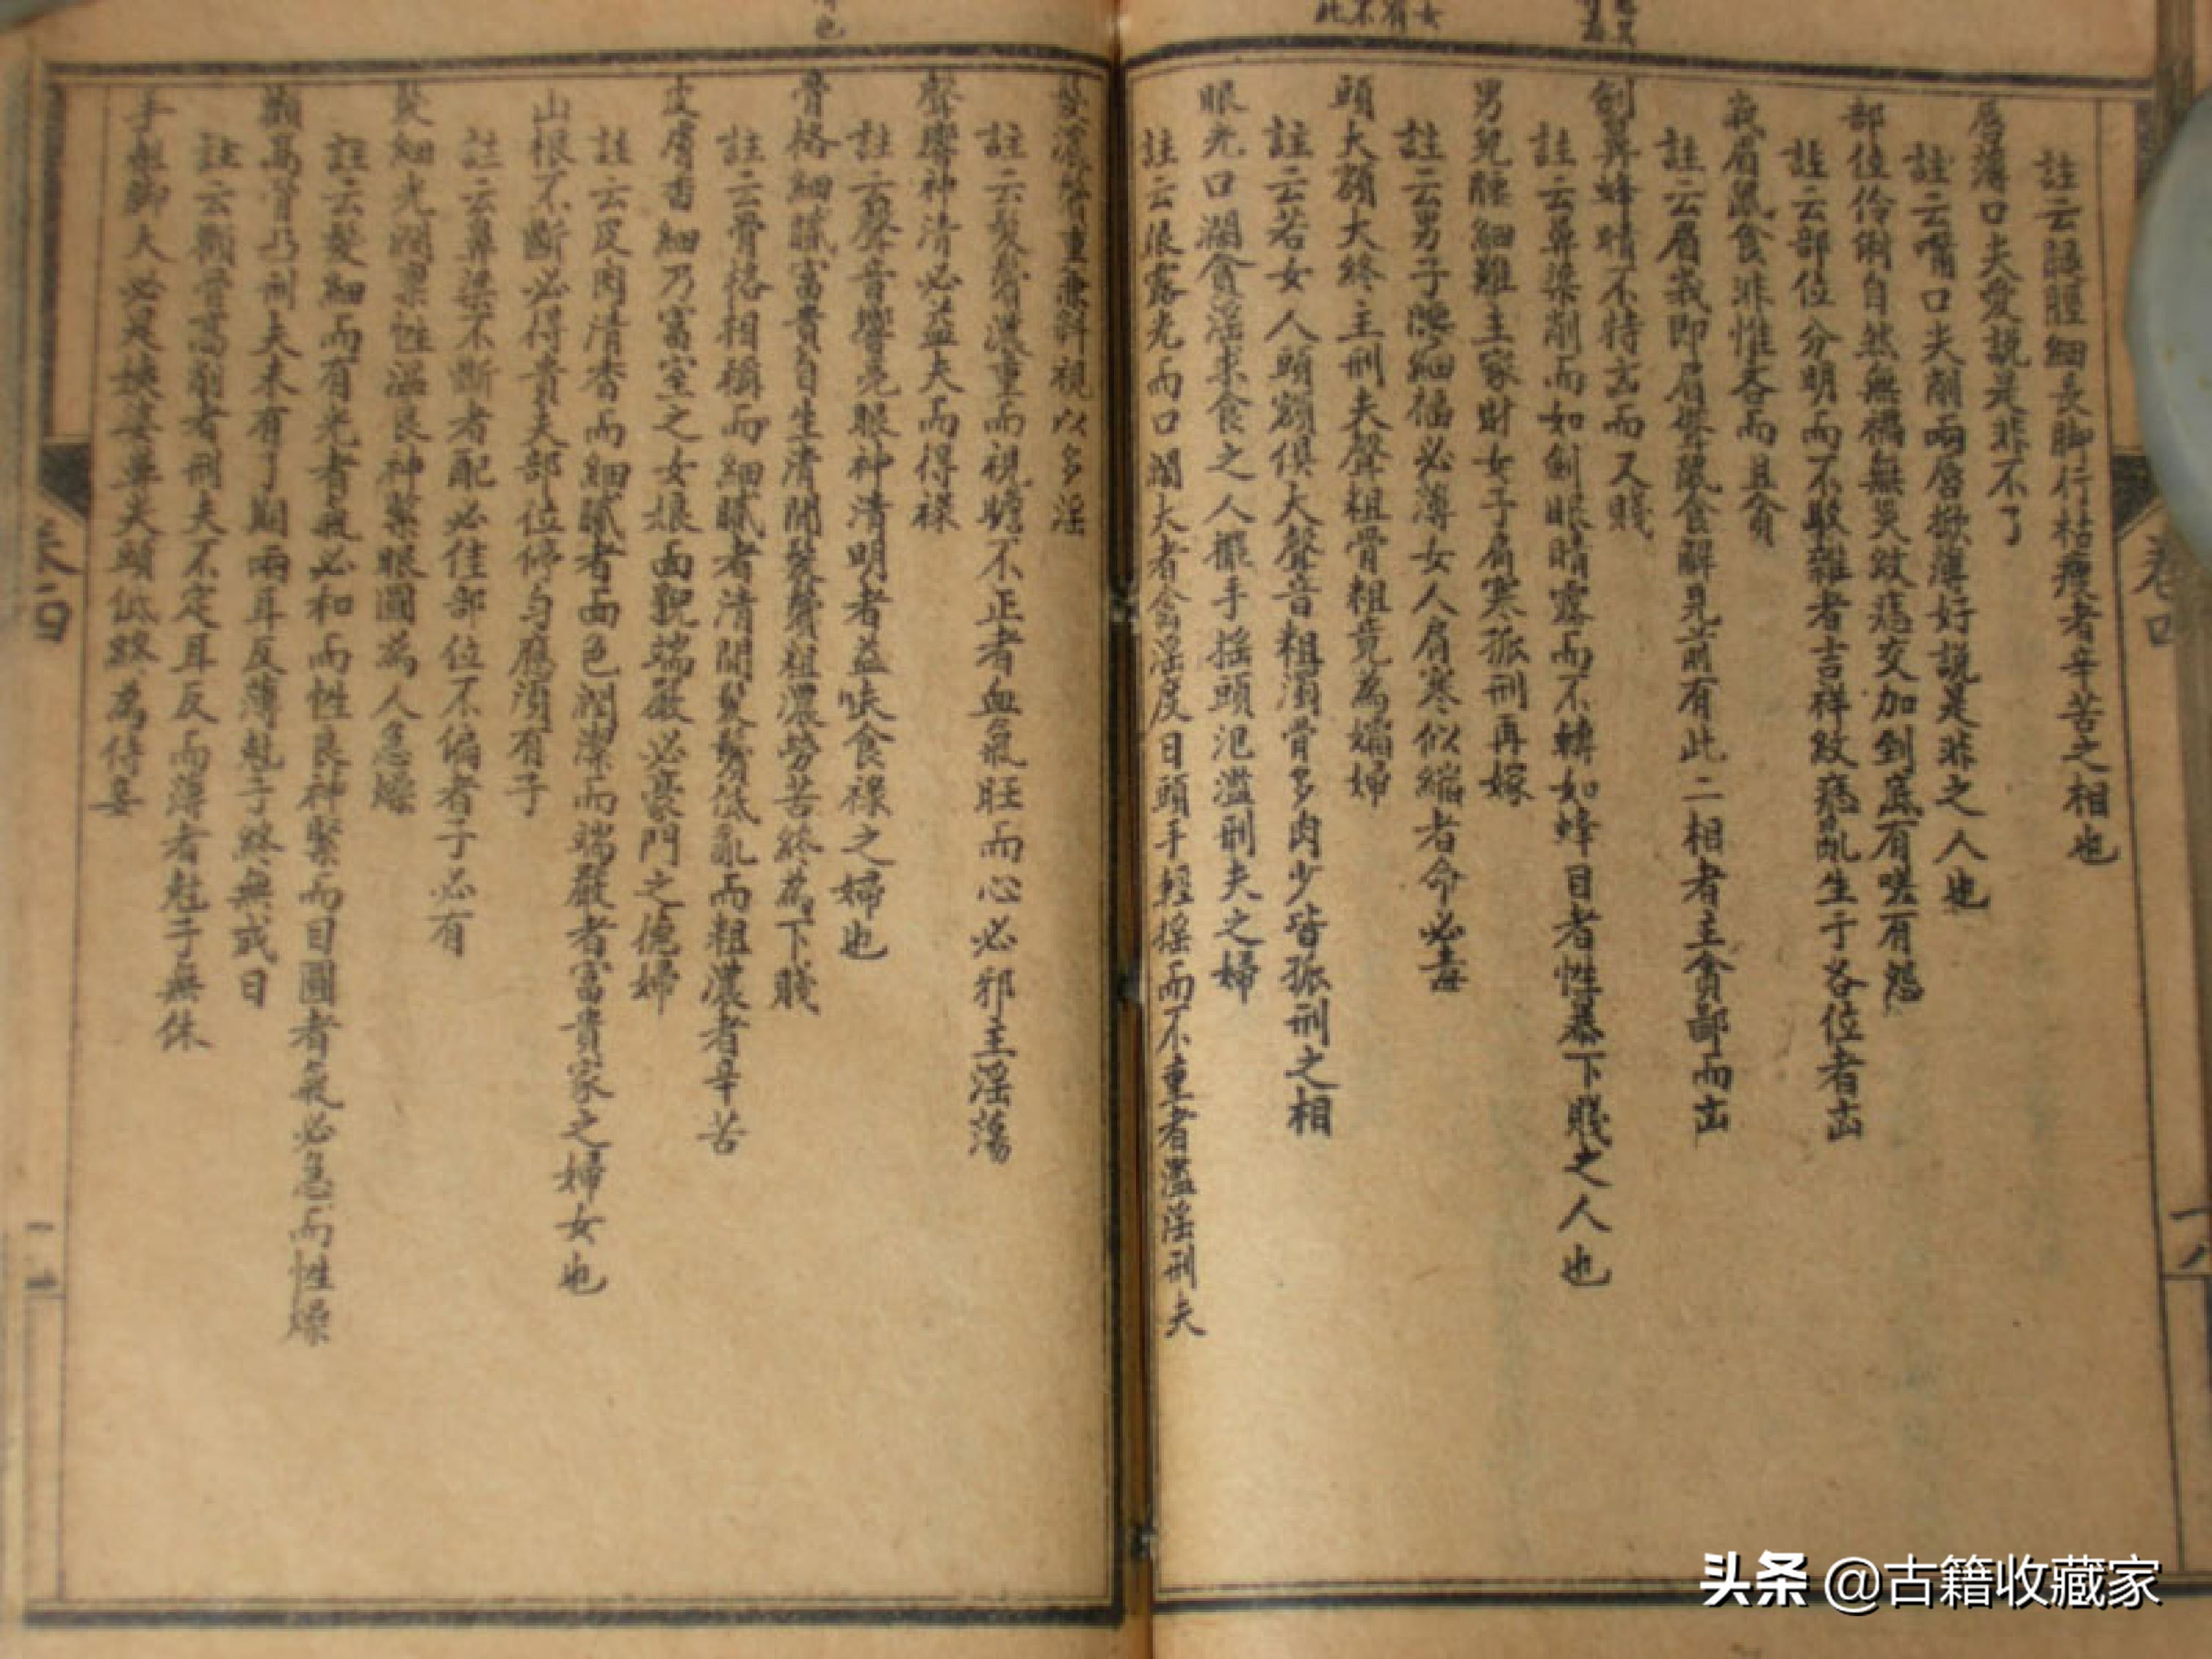 註云腿脛細長脚行枯瘦者辛苦之相也
唇薄口尖愛說是非不了
註云嘴口尖削兩唇掀薄好說是非之人也
部位伶俐自然無禍無災紋痣交加到底有嗟有怨
註云部位分明而不駁雜者吉祥紋痣亂生于各位者凶
註云眉蛾即眉鼠食解見前有此二相者主貪鄙而凶
劍鼻蜂睛不特凶而又賤
註云鼻梁削而如劍眼睛露而不轉如蜂目者性暴下賤之人也
男兒腰細難主家財女子肩寒孤刑再嫁
註云男子腰細福必薄女人肩寒似縮者命必毒
頭大額大終主刑夫聲粗骨粗竟為孀婦
註云若女人頭額俱大聲音粗濁骨多肉少皆孤刑之相
眼光口濶貪淫求食之人擺手搖頭氾濫刑夫之婦
註云眼露光而口濶大者貪淫度日頭手輕搖而不重者濫淫刑夫
髮濃鬢重兼斜視以多淫
註云髮鬢濃重而視瞻不正者血氣旺而心必邪主淫蕩
聲響神清必益夫而得祿
註云聲音響亮眼神清明者益夫食祿之婦也
骨格細膩富貴自生清閒髮鬢粗濃勞苦終為下賤
註云骨格相稱而細膩者清閒髮鬢低亂而粗濃者辛苦
皮膚香細乃富室之女娘面貌端嚴必豪門之德婦
註云皮肉清香而細膩者面色潤潔而端嚴者富貴家之婦女也
山根不斷必得貴夫部位停勻應須有子
註云鼻梁不斷者配必佳部位不偏者子必有
髮細光潤稟性溫良神緊眼圓為人急燥
註云髮細而有光者氣必和而性良神緊而目圓者氣必急而性燥
顴高骨凸刑夫未有了期兩耳反薄尅子終無忒日
註云顴骨高削者刑夫不定耳反而薄者尅子無休
手粗脚大必是姨婆鼻尖頭低終為侍妾
卷四
頭条 @古籍收藏家